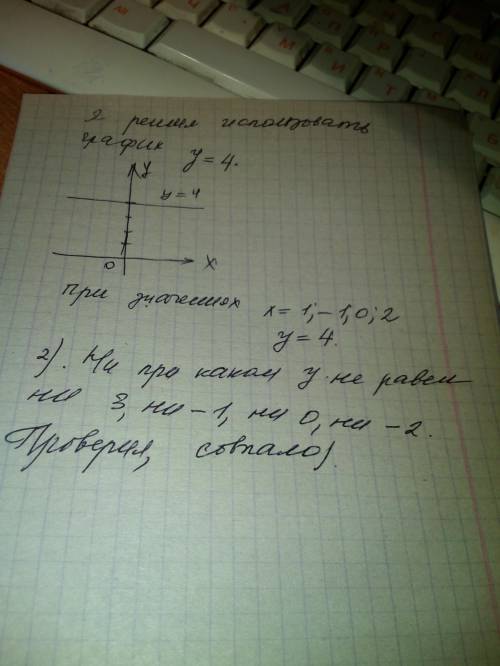 Я решил использовать
график y = 4.
y
y = 4
0
x
при значениях x = 1; -1, 0; 2
y = 4.
2). Ни при каком y не равен
ни 3, ни -1, ни 0, ни -2.
Проверил, совпало).